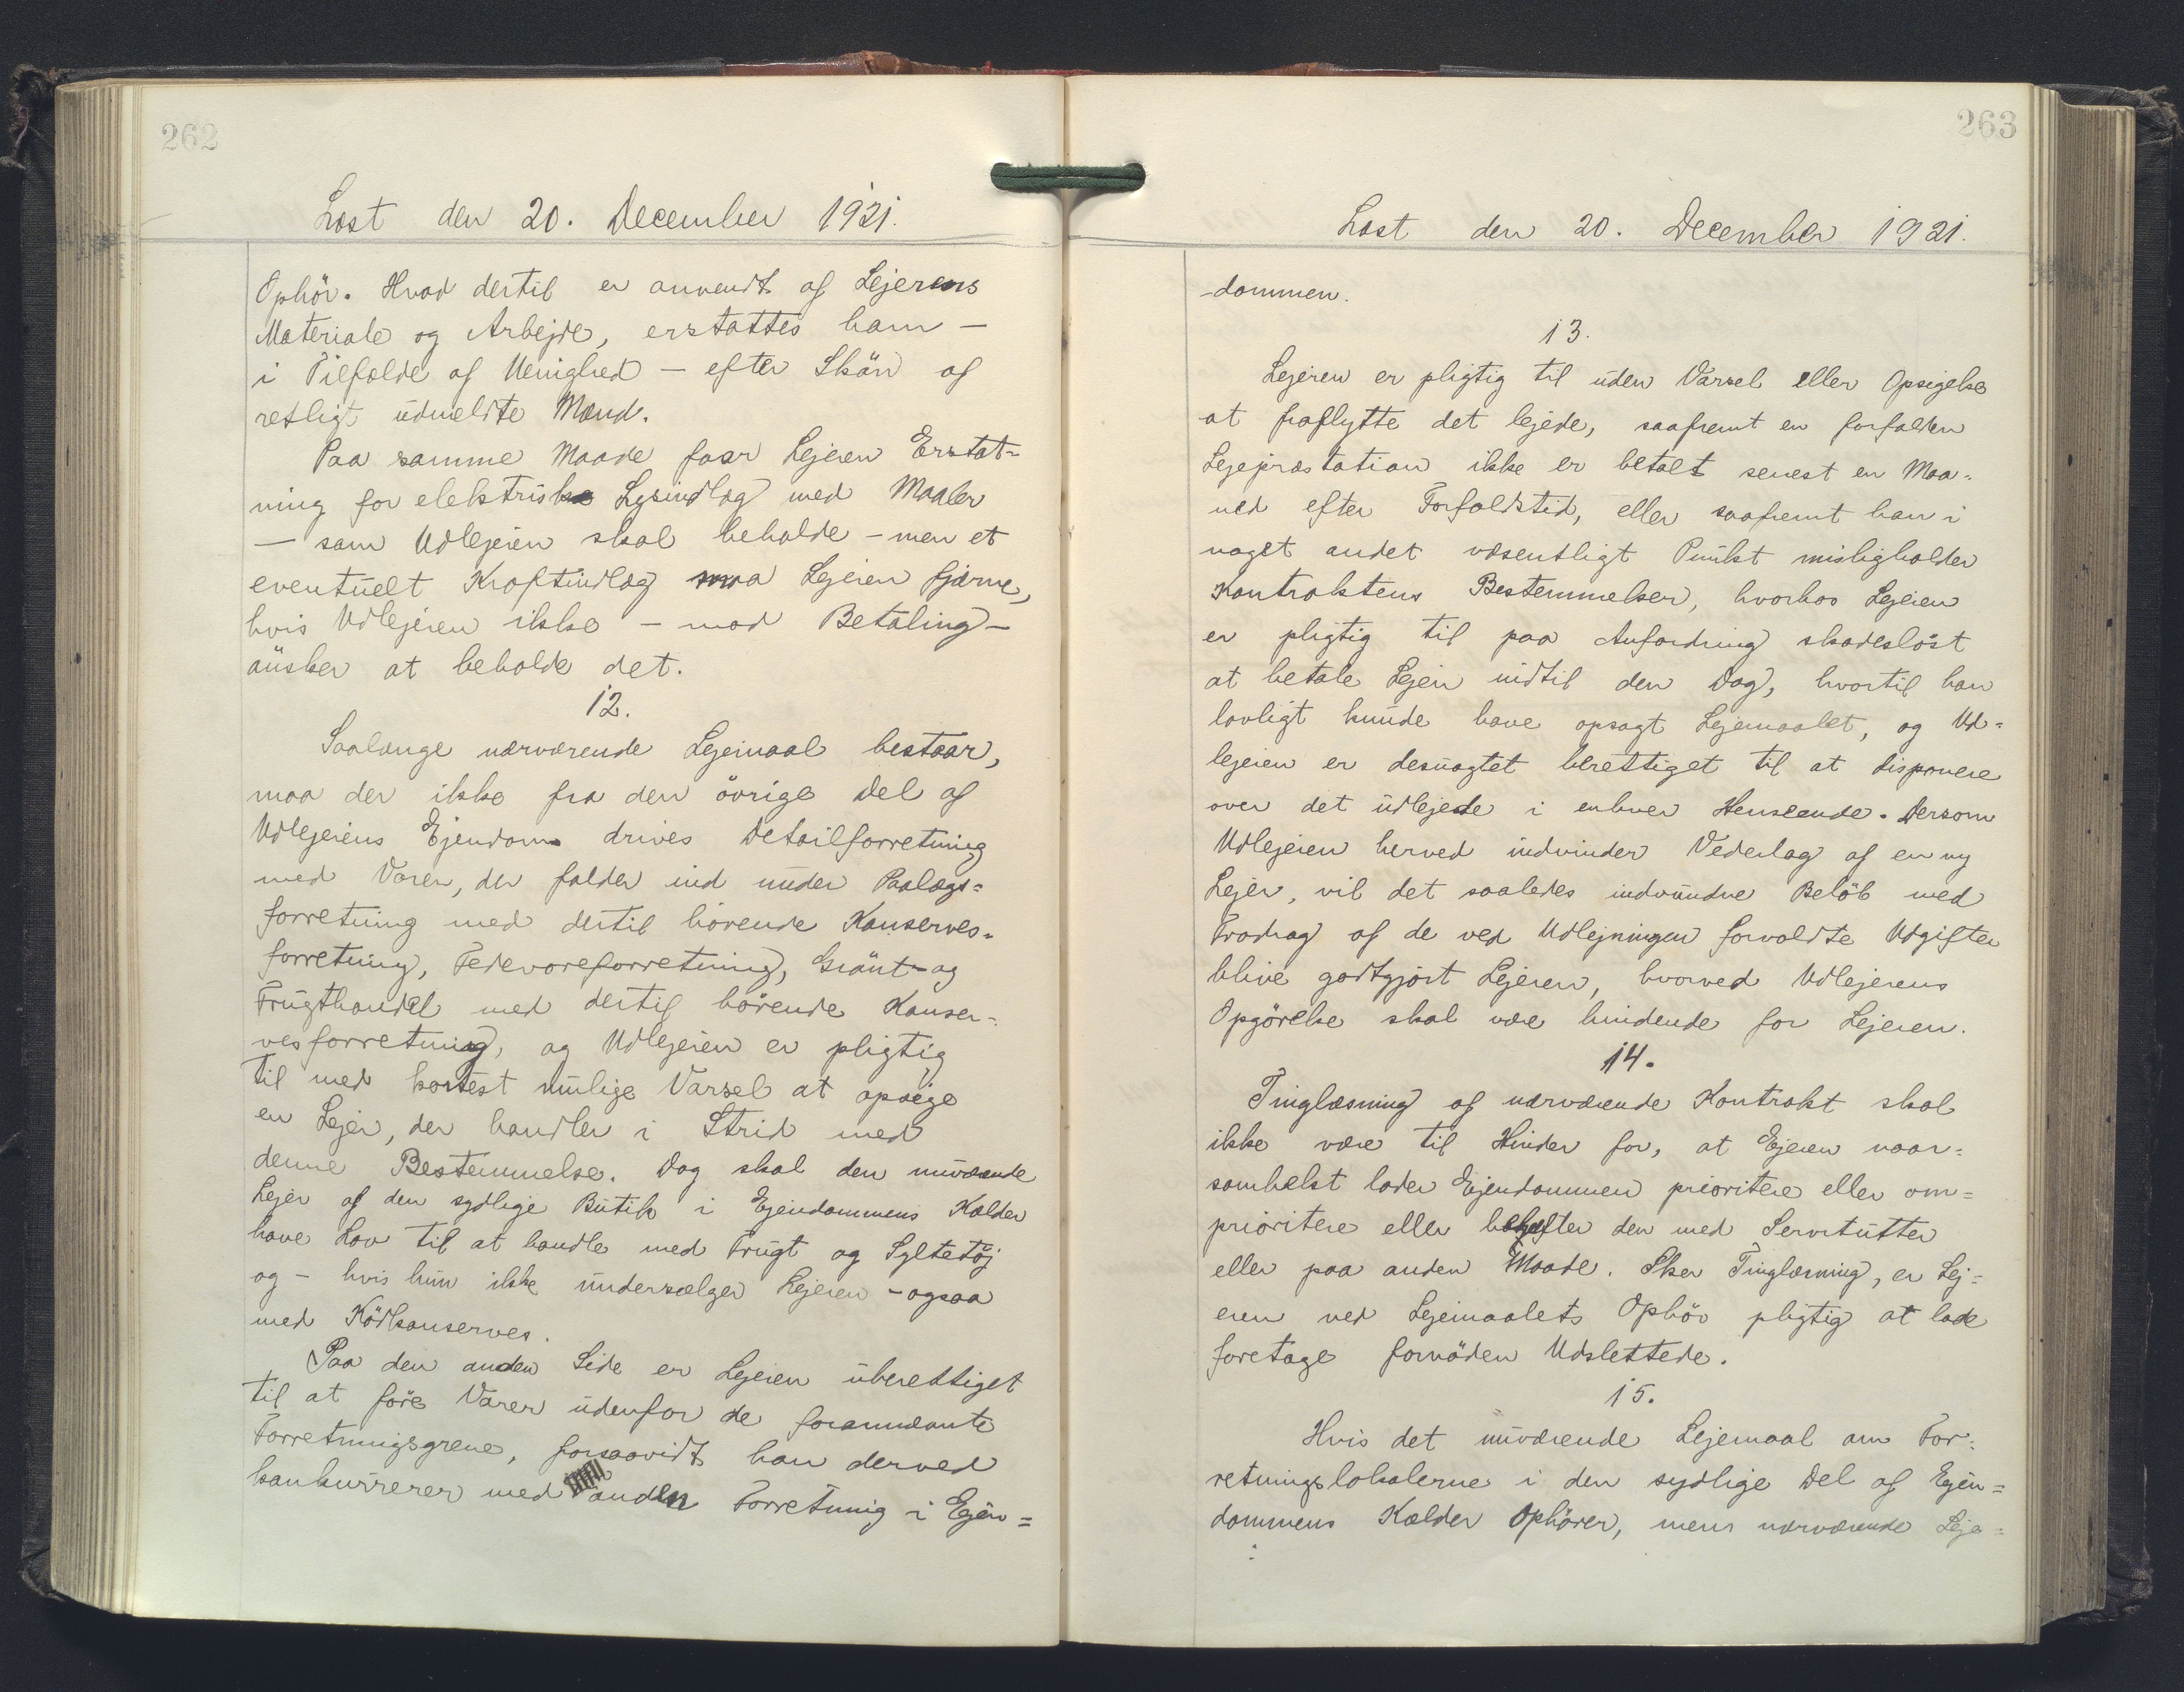 262
Læst den 20. December 1921.
Ophör. Hvad dertil er anvendt af Lejerens
Materiale og Arbejde, erstattes ham —
i Tilfælde af Uenighed — efter Skön af
retligt udmeldte Mænd.
Paa samme Maade faar Lejeren Erstat=
ning for elektriske Lysindlæg med Maaler
— som Udlejeren skal beholde — men et
eventuelt Kraftindlæg maa Lejeren fjærne,
hvis Udlejeren ikke — mod Betaling —
önsker at beholde det.
12.
Saalænge nærværende Lejemaal bestaar,
maa der ikke fra den övrige Del af
Udlejerens Ejendom drives Detailforretning
med Varer, der falder ind under Paalægs=
forretning med dertil hörende Konserves=
forretning, Fedevareforretning, Grönt- og
Frugthandel med dertil hörende Konser=
vesforretning, og Udlejeren er pligtig
til med kortest mulige Varsel at opsige
en Lejer, der handler i Strid med
denne Bestemmelse. Dog skal den nuværende
Lejer af den sydlige Butik i Ejendommens Kælder
have Lov til at handle med Frugt og Syltetöj
og — hvis hun ikke undersælger Lejeren — ogsaa
med Ködkonserves.
Paa den anden Side er Lejeren uberettiget
til at före Varer udenfor de forannævnte
Forretningsgrene, forsaavidt han derved
konkurrerer med anden Forretning i Ejen=
263
Læst den 20. December 1921.
-dommen.
13.
Lejeren er pligtig til uden Varsel eller Opsigelse
at fraflytte det lejede, saafremt en forfalden
Lejepræstation ikke er betalt senest en Maa=
ned efter Forfaldstid, eller saafremt han i
noget andet væsentligt Punkt misligholder
Kontraktens Bestemmelser, hvorhos Lejeren
er pligtig til paa Anfordring skadeslöst
at betale Lejen indtil den Dag, hvortil han
lovligt kunde have opsagt Lejemaalet, og Ud=
lejeren er desuagtet berettiget til at disponere
over det udlejede i enhver Henseende. Dersom
Udlejeren herved indvinder Vederlag af en ny
Lejer, vil det saaledes indvundne Belöb med
Fradrag af de ved Udlejningen forvoldte Udgifter
blive godtgjort Lejeren, hvorved Udlejerens
Opgörelse skal være bindende for Lejeren.
14.
Tinglæsning af nærværende Kontrakt skal
ikke være til Hinder for, at Ejeren naar=
somhelst lader Ejendommen prioritere eller om=
prioritere eller behefter den med Servitutter
eller paa anden Maade. Sker Tinglæsning, er Lej=
eren ved Lejemaalets Ophör pligtig at lade
foretage fornöden Udslettede.
15.
Hvis det nuværende Lejemaal om For=
retningslokalerne i den sydlige Del af Ejen=
dommens Kælder Ophörer, mens nærværende Leje=